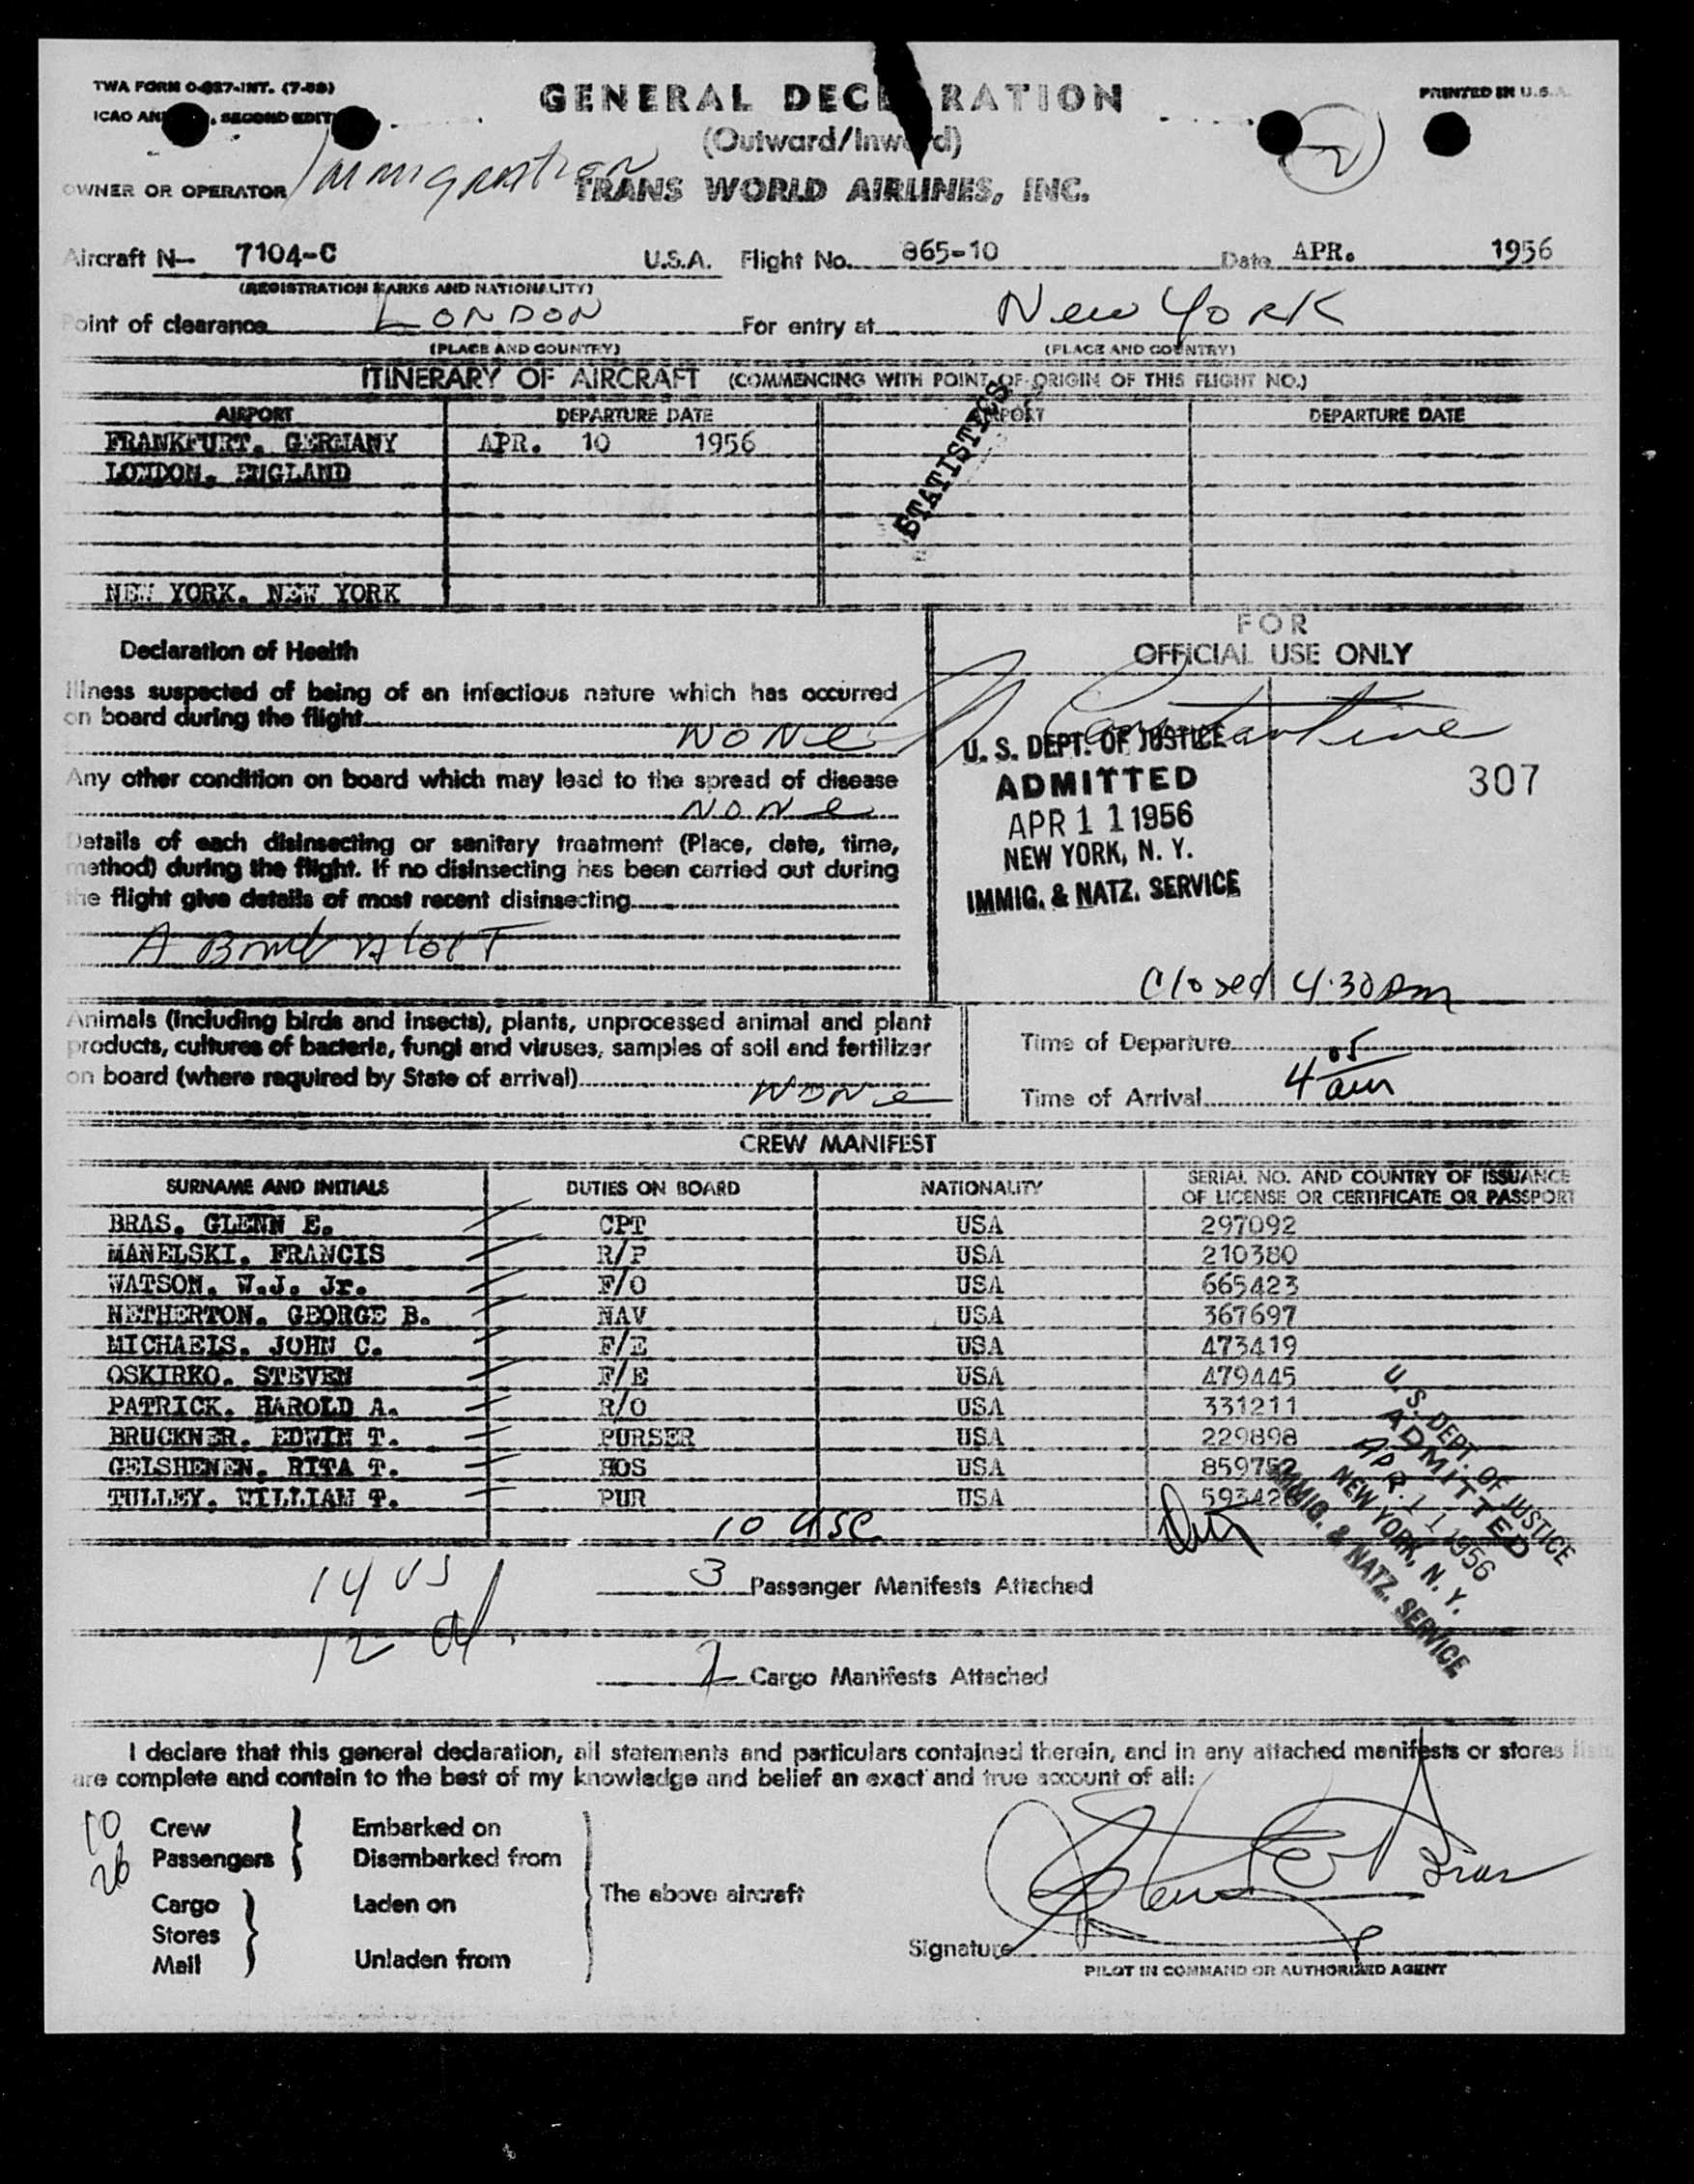 TWA FORM O-827-INT. (7-53)
PRINTED IN U.S.A.
GENERAL DECLARATION
(Outward/Inward)
ICAO ANNEX , SECOND EDITION
2
Immigration
OWNER OR OPERATOR TRANS WORLD AIRLINES, INC.
Aircraft N— 7104-C U.S.A. Flight No. 865-10 Date APR. 1956
(REGISTRATION MARKS AND NATIONALITY)
Point of clearance LONDON For entry at New York
(PLACE AND COUNTRY) (PLACE AND COUNTRY)
ITINERARY OF AIRCRAFT (COMMENCING WITH POINT OF ORIGIN OF THIS FLIGHT NO.)
AIRPORT DEPARTURE DATE AIRPORT DEPARTURE DATE
FRANKFURT, GERMANY APR. 10 1956
LONDON, ENGLAND
STATISTICS
NEW YORK, NEW YORK
FOR
OFFICIAL USE ONLY
Declaration of Health
Illness suspected of being of an infectious nature which has occurred
on board during the flight
None
Constantine
U. S. DEPT. OF JUSTICE
ADMITTED
APR 1 1 1956
NEW YORK, N. Y.
IMMIG. & NATZ. SERVICE
307
Any other condition on board which may lead to the spread of disease
None
Details of each disinsecting or sanitary treatment (Place, date, time,
method) during the flight. If no disinsecting has been carried out during
the flight give details of most recent disinsecting
A Bomb Aloft
Closed 4:30 am
Animals (including birds and insects), plants, unprocessed animal and plant
products, cultures of bacteria, fungi and viruses, samples of soil and fertilizer
on board (where required by State of arrival)
None
Time of Departure
Time of Arrival 4 05 am
CREW MANIFEST
SURNAME AND INITIALS DUTIES ON BOARD NATIONALITY SERIAL NO. AND COUNTRY OF ISSUANCE
OF LICENSE OR CERTIFICATE OR PASSPORT
BRAS, GLENN E. CPT USA 297092
MANELSKI, FRANCIS R/P USA 210380
WATSON, W.J. Jr. F/O USA 665423
NETHERTON, GEORGE B. NAV USA 367697
MICHAELS, JOHN C. F/E USA 473419
OSKIRKO, STEVEN F/E USA 479445
PATRICK, HAROLD A. R/O USA 331211
BRUCKNER, EDWIN T. PURSER USA 229898
GELSHENEN, RITA T. HOS USA 859752
TULLEY, WILLIAM P. PUR USA 593426
10 USC
U. S. DEPT. OF JUSTICE
ADMITTED
APR 1 1 1956
NEW YORK, N. Y.
IMMIG. & NATZ. SERVICE
14 US
3 Passenger Manifests Attached
12 al.
2 Cargo Manifests Attached
I declare that this general declaration, all statements and particulars contained therein, and in any attached manifests or stores lists
are complete and contain to the best of my knowledge and belief an exact and true account of all:
10 Crew Embarked on
26 Passengers Disembarked from
The above aircraft
Cargo Laden on
Stores
Mail Unladen from
Glenn E Bras
Signature
PILOT IN COMMAND OR AUTHORIZED AGENT